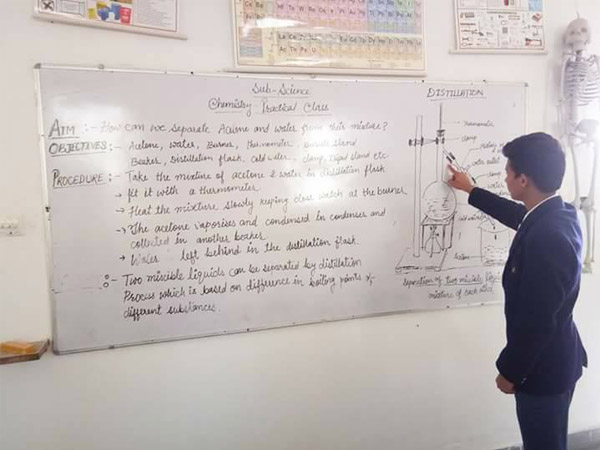 Sub-Science
Chemistry Practical Class
AIM :- How can we separate Acetone and water from their mixture?
OBJECTIVES :- Acetone, water, Burner, thermometer, stand
Beaker, Distillation flask, cold water, clamp, etc.
PROCEDURE :- Take the mixture of acetone & water in distillation flask
→ fit it with a thermometer
→ Heat the mixture slowly keeping close watch at the burner
→ The acetone vaporises and condensed in condenser and
collected in another beaker.
→ Water left behind in the distillation flask.
∴ - Two miscible liquids can be separated by distillation
Process which is based on difference in boiling points of
different substances.
DISTILLATION
Thermometer
clamp
water outlet
clamp
water
cold water
Acetone
separation of two miscible
mixture of each other